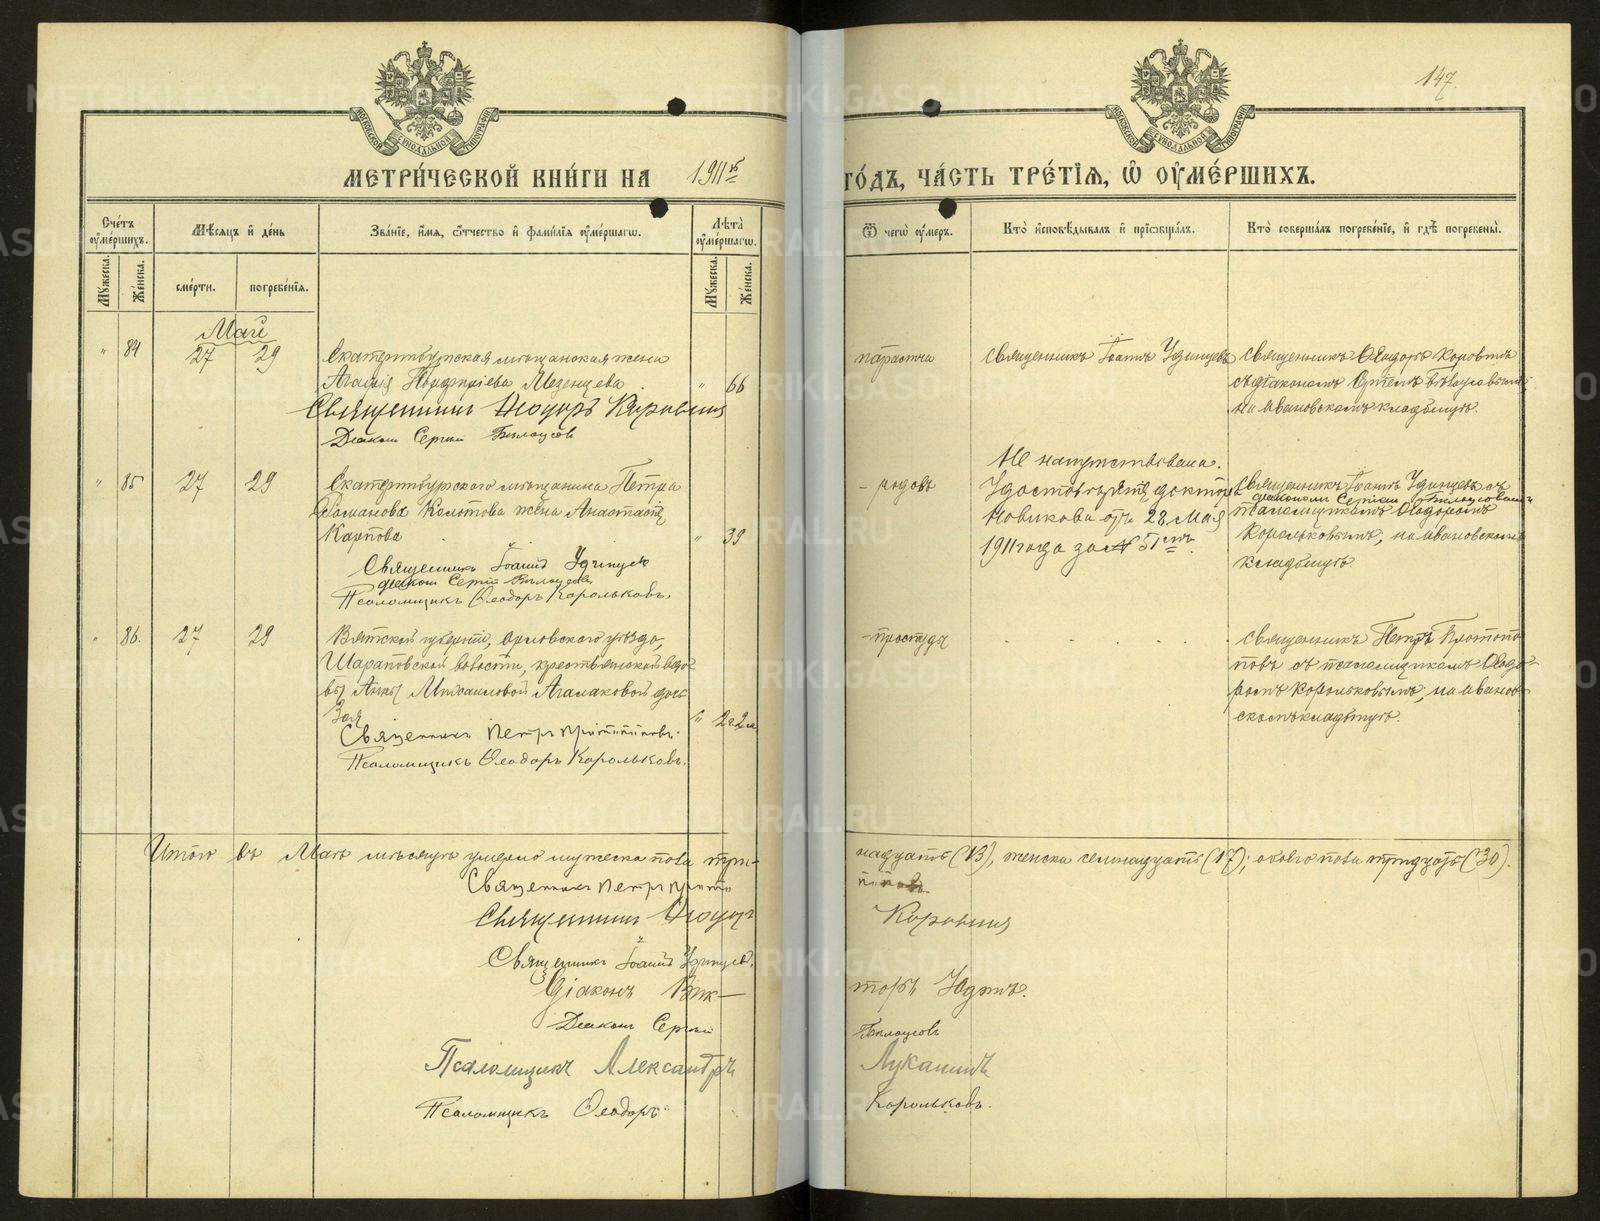 147.
МЕТРИ́ЧЕСКОЙ КНИ́ГИ НА 1911й ГО́ДЪ, ЧА́СТЬ ТРЕ́ТІЯ, Ѡ ОУМЕ́РШИХЪ.
Сче́тъ оуме́ршихъ.
Мѣ́сяцъ и де́нь
Зва́ніе, и́мя, ѻ́тчество и фами́лія оуме́ршагѡ.
Лѣ́та оуме́ршагѡ.
Ѿ чегѡ̀ оу́меръ.
Кто̀ исповѣ́дывалъ и пріѡбща́лъ.
Кто̀ соверша́лъ погребе́ніе, и гдѣ̀ погребены̀.
Му́жеска.
Же́нска.
сме́рти.
погребе́нія.
Му́жеска.
Же́нска.
Май
" 84 27 29
Екатеринбургская мѣщанская жена
Агафія Порфиріева Мезенцева " 66
Священникъ Ѳеодоръ Коровинъ
Діаконъ Сергій Бѣлоусовъ
паралича
Священникъ Іоаннъ Удинцевъ
Священникъ Ѳеодоръ Коровинъ
съ діакономъ
на Ивановскомъ кладбищѣ.
" 85 27 29
Екатеринбургскаго мѣщанина Петра
Романова Колотова жена Анастасія
Карпова " 39
Священникъ Іоаннъ Удинцевъ
діаконъ Сергій Бѣлоусовъ
Псаломщикъ Ѳеодоръ Корольковъ.
- родовъ
Не напутствована.
Удостовѣреніе доктора
Новикова отъ 28 Мая
1911 года за № 51мъ
Священникъ Іоаннъ Удинцевъ съ
діакономъ Сергіемъ Бѣлоусовымъ
псаломщикомъ Ѳеодоромъ
Корольковымъ, на Ивановскомъ
кладбищѣ
" 86. 27 29
Вятской губерніи, Орловскаго уѣзда,
Шараповской волости, крестьянской вдо-
вы Анны Михаиловой Агалаковой дочь
Зоя " 2г.2м
Священникъ Петръ Протопоповъ.
Псаломщикъ Ѳеодоръ Корольковъ.
- простуды
Священникъ Петръ Протопо-
повъ съ псаломщикомъ Ѳеодо-
ромъ Корольковымъ, на Иванов-
скомъ кладбищѣ.
Итого въ Маѣ мѣсяцѣ умерло мужеска пола три-надцать (13), женска семнадцать (17); обоего пола тридцать (30).
Священникъ Петръ Протопоповъ.
Священникъ Ѳеодоръ Коровинъ
Священникъ Іоаннъ Удинцевъ.
Діаконъ Вик-торъ
Діаконъ Сергій Бѣлоусовъ
Псаломщикъ Александръ Луканинъ
Псаломщикъ Ѳеодоръ Корольковъ.
METRIKI.GASO-URAL.RU